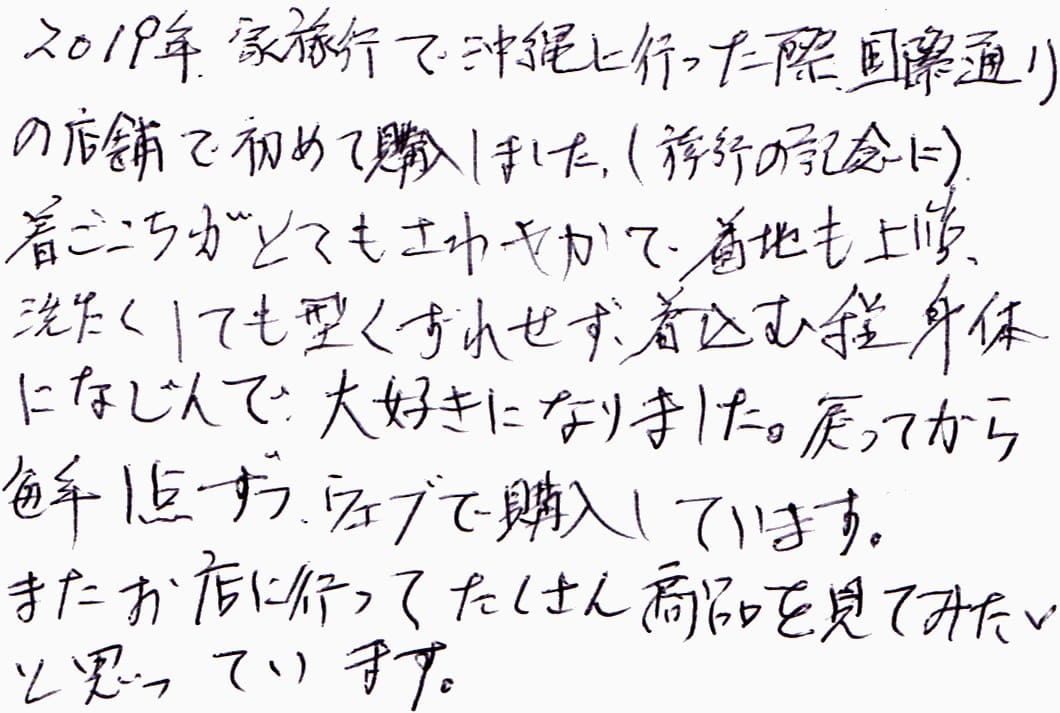 2019年、家族旅行で沖縄に行った際、国際通り
の店舗で初めて購入しました。(旅行の記念に)
着ごこちがとてもさわやかで、着地も上質、
洗たくしても型くずれせず、着込む程身体
になじんで、大好きになりました。戻ってから
毎年1点ずつ、ウェブで購入しています。
またお店に行ってたくさん商品を見てみたい
と思っています。